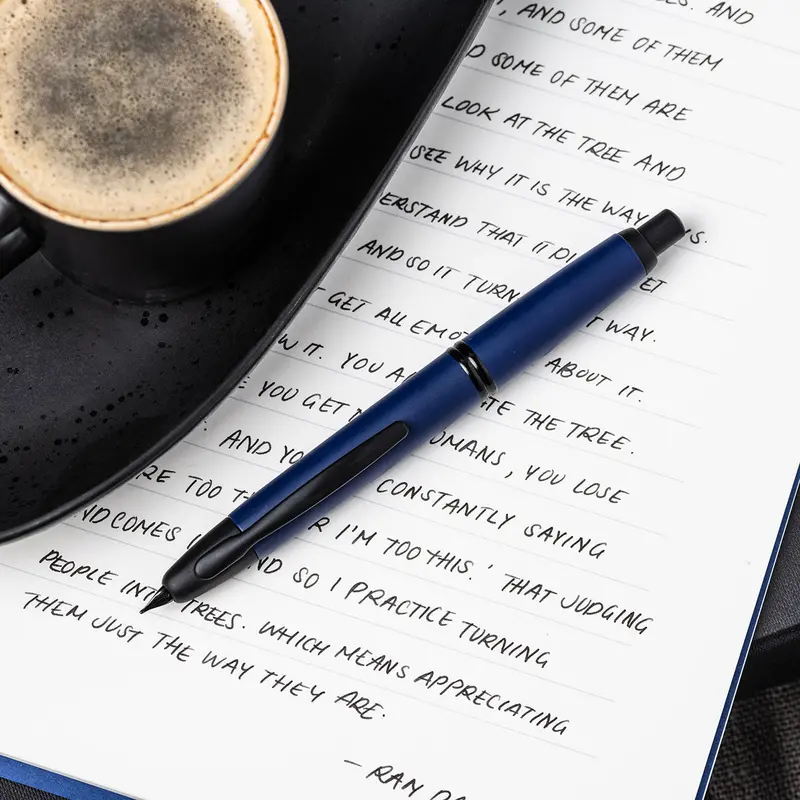 AND
, AND SOME OF THEM
SOME OF THEM ARE
LOOK AT THE TREE AND
SEE WHY IT IS THE WAY IS.
ERSTAND THAT IT DI ET
AND SO IT TURN T WAY.
GET ALL EMO ABOUT IT.
W IT. YOU A TE THE TREE.
YOU GET OMANS, YOU LOSE
AND YO CONSTANTLY SAYING
RE TOO TH R I'M TOO THIS.' THAT JUDGING
ND COMES I ND SO I PRACTICE TURNING
PEOPLE INT TREES. WHICH MEANS APPRECIATING
THEM JUST THE WAY THEY ARE.
– RAM DA